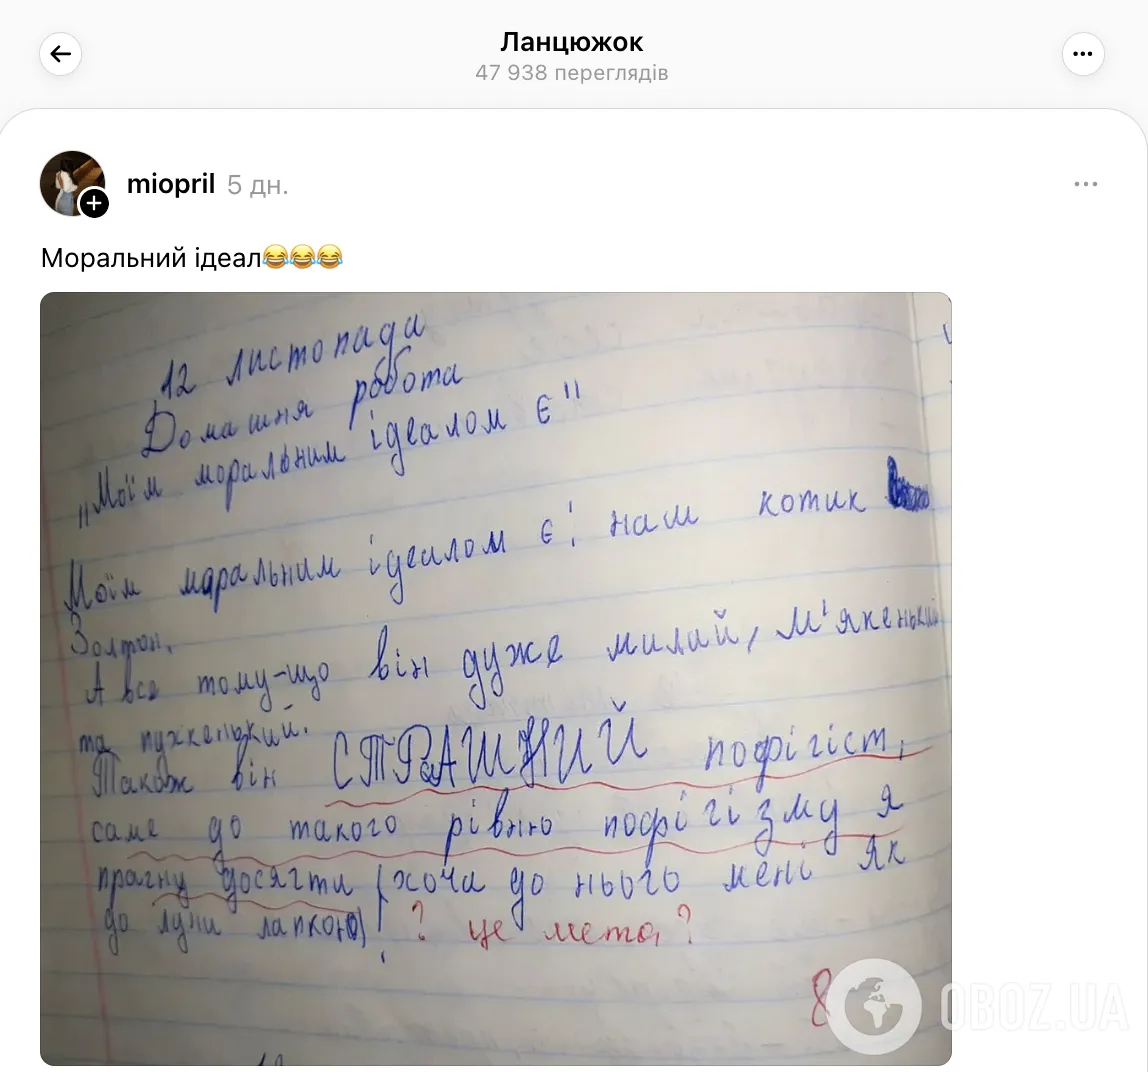 Ланцюжок
47 938 переглядів
miopril 5 дн.
Моральний ідеал😂😂😂
12 листопада
Домашня робота
„Моїм моральним ідеалом є"
Моїм моральним ідеалом є; наш котик
Золтон.
А все тому-що він дуже милий, м'якенький
та пухкенький.
Також він СТРАШНИЙ пофігіст,
саме до такого рівню пофігізму я
прагну досягти (хоча до нього мені як
до луни лапкою)! ? це мета?
8
OBOZ.UA